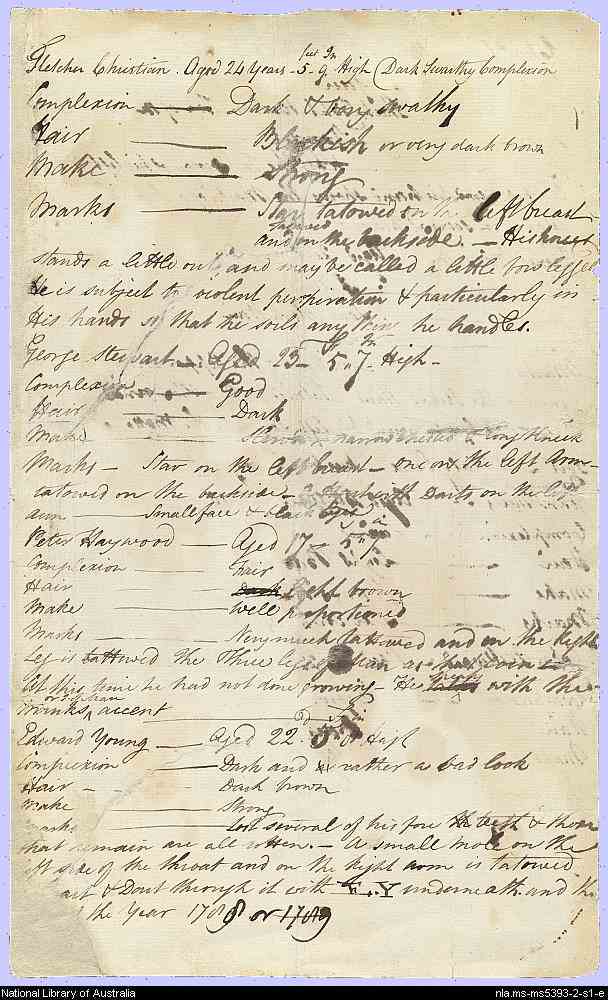 Fletcher Christian. Aged 24 Years - 5 feet 9 In High (Dark Swarthy Complexion
Complexion Dark & very swathy
Hair Blackish or very dark brown
Make Strong
Marks Star tatowed on the left breast
and on the backside. - His knees
stands a little out and may be called a little bow legged
He is subject to violent perspiration & particularly in
His hands so that he soils any thing he handles.
George Stewart. Aged 23 - 5 F 7 In High -
Complexion Good
Hair Dark
Make Slender narrow chested & long Neck
Marks - Star on the left breast - one on the left Arm -
tatowed on the backside - Darts on the left
arm - Small face & black Eyes
Peter Haywood - Aged 17 - 5 " 7
Complexion Fair
Hair Dark Light brown
Make Well proportioned
Marks Very much tattowed and on the Right
Leg is tattowed the Three legs of Man as that coin -
At this time he had not done growing - He with the
Manks accent
Edward Young - Aged 22. 5 8 High
Complexion Dark and rather a bad look
Hair - - Dark brown
Make Strong
Marks Lost several of his fore teeth & those
that remain are all rotten. - A small mole on the
left side of the throat and on the Right arm is tatowed
& Dart through it with E.Y underneath and the
the Year 1788 or 1789
National Library of Australia
nla.ms-ms5393-2-s1-e